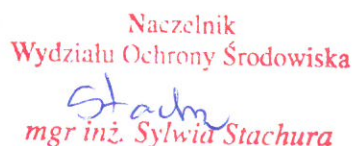 Naczelnik
Wydziału Ochrony Środowiska
Stach
mgr inż. Sylwia Stachura